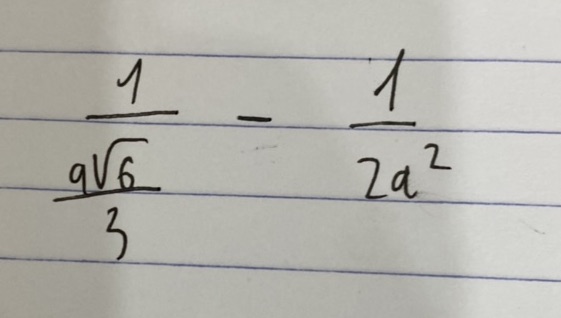 \frac{1}{\frac{a\sqrt{6}}{3}} - \frac{1}{2a^2}